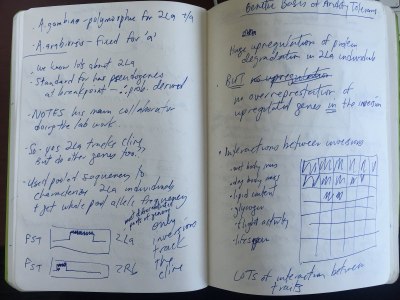 A. gambiae - polymorphic for 2La +/a
A. arabiensis - fixed for 'a'
- we know lots about 2La
- Standard for has pseudogenes
at breakpoint - ∴ prob. derived
- NOTES his main collaborator
doing the lab work.
- So - yes 2La tracks cline
But do other genes too??
- Used pooled sequences to
characterize 2La individuals
+ get whole pool allele frequency
only
inversions
track
the
cline
FST 2La
FST 2Rb
Genetic Basis of Aridity Tolerance
Huge upregulation of protein
degradation in 2La individuals
• BUT no upregulation
no overrepresentation of
upregulated genes in the inversion
• Interactions between inversions
- wet body mass
- dry body mass
- lipid content
- glycogen
- flight activity
- lifespan
LOTS of interaction between
traits